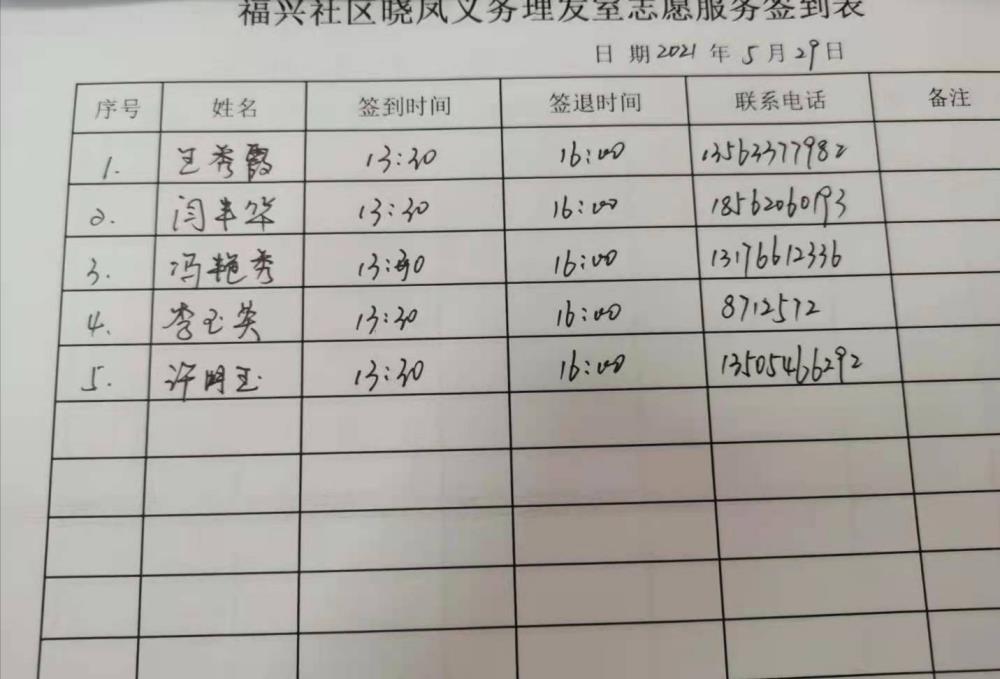 福兴社区晓凤义务理发室志愿服务签到表
日 期 2021 年 5 月 29 日
序号 姓名 签到时间 签退时间 联系电话 备注
1. 王秀霞 13:30 16:00 13563377982
2. 闫丰华 13:30 16:00 18562060193
3. 冯艳秀 13:30 16:00 13176612336
4. 李玉英 13:30 16:00 8712572
5. 许明玉 13:30 16:00 13505466292